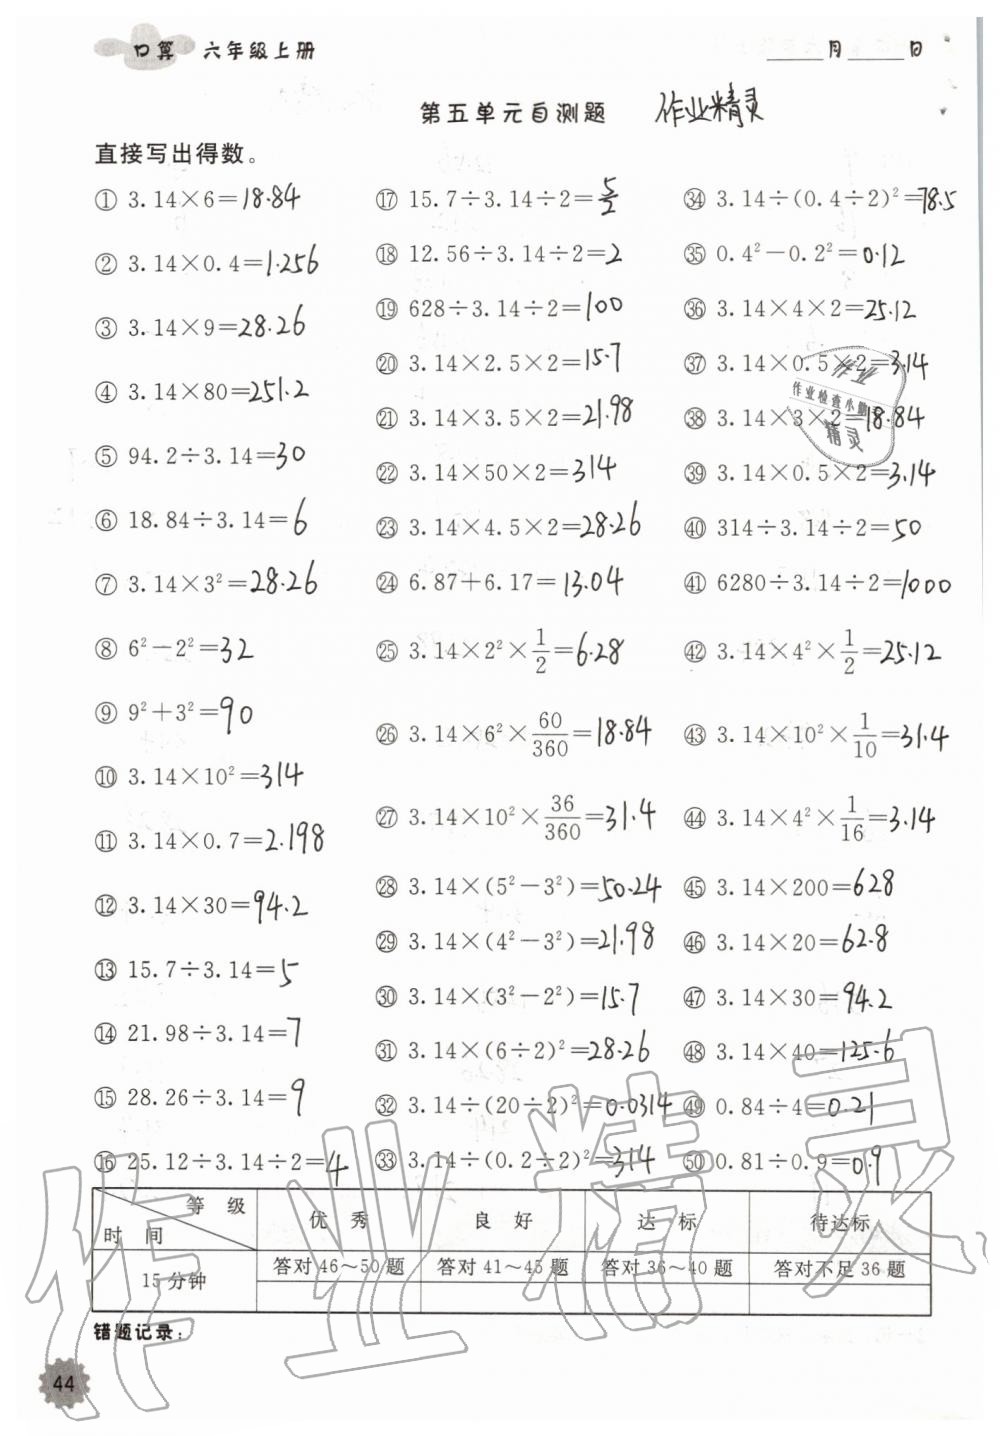 口算 六年级上册
____月____日
第五单元自测题 作业精灵
直接写出得数。
① 3.14×6=18.84
② 3.14×0.4=1.256
③ 3.14×9=28.26
④ 3.14×80=251.2
⑤ 94.2÷3.14=30
⑥ 18.84÷3.14=6
⑦ 3.14×3²=28.26
⑧ 6²-2²=32
⑨ 9²+3²=90
⑩ 3.14×10²=314
⑪ 3.14×0.7=2.198
⑫ 3.14×30=94.2
⑬ 15.7÷3.14=5
⑭ 21.98÷3.14=7
⑮ 28.26÷3.14=9
⑯ 25.12÷3.14÷2=4
⑰ 15.7÷3.14÷2=5/2
⑱ 12.56÷3.14÷2=2
⑲ 628÷3.14÷2=100
⑳ 3.14×2.5×2=15.7
㉑ 3.14×3.5×2=21.98
㉒ 3.14×50×2=314
㉓ 3.14×4.5×2=28.26
㉔ 6.87+6.17=13.04
㉕ 3.14×2²×1/2=6.28
㉖ 3.14×6²×60/360=18.84
㉗ 3.14×10²×36/360=31.4
㉘ 3.14×(5²-3²)=50.24
㉙ 3.14×(4²-3²)=21.98
㉚ 3.14×(3²-2²)=15.7
㉛ 3.14×(6÷2)²=28.26
㉜ 3.14÷(20÷2)²=0.0314
㉝ 3.14÷(0.2÷2)²=314
㉞ 3.14÷(0.4÷2)²=78.5
㉟ 0.4²-0.2²=0.12
㊱ 3.14×4×2=25.12
㊲ 3.14×0.5×2=3.14
㊳ 3.14×3×2=18.84
㊴ 3.14×0.5×2=3.14
㊵ 314÷3.14÷2=50
㊶ 6280÷3.14÷2=1000
㊷ 3.14×4²×1/2=25.12
㊸ 3.14×10²×1/10=31.4
㊹ 3.14×4²×1/16=3.14
㊺ 3.14×200=628
㊻ 3.14×20=62.8
㊼ 3.14×30=94.2
㊽ 3.14×40=125.6
㊾ 0.84÷4=0.21
㊿ 0.81÷0.9=0.9
作业
作业检查小助
精灵
等级 优秀 良好 达标 待达标
时间
15分钟 答对46～50题 答对41～45题 答对36～40题 答对不足36题
错题记录：
44
作业精灵